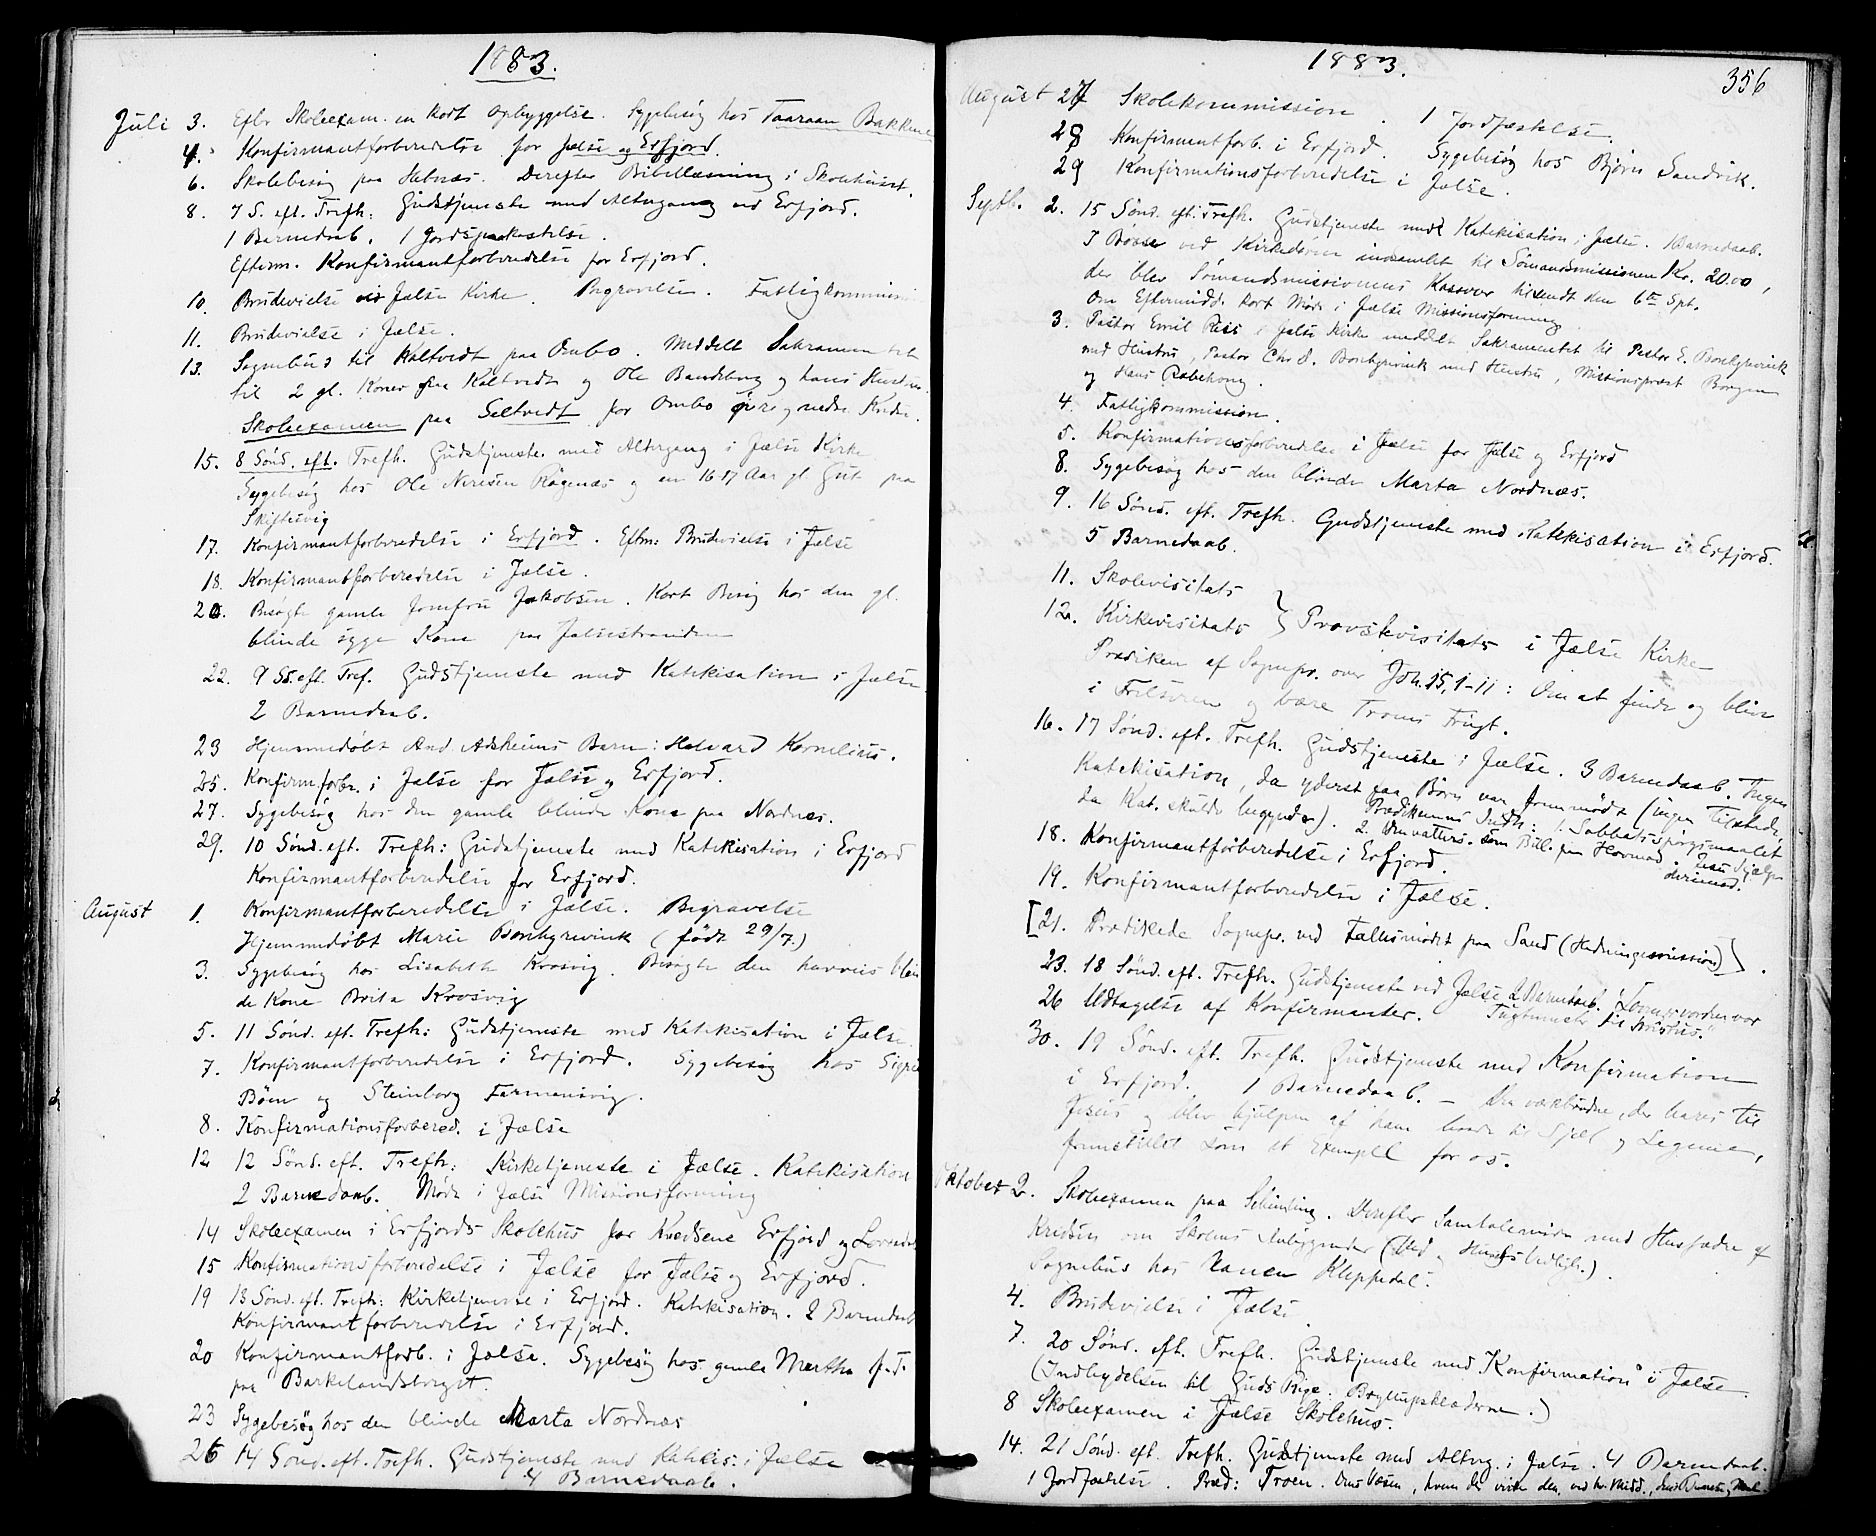 1883.
Juli 3. Efter Skoleexam. en kort Opbyggelse. Sygebesøg hos Taaraan Bakkene
4. Konfirmantforberedelse for Jælse og Erfjord.
6. Skolebesøg paa Helnæs. Derefter Bibellæsning i Skolehuset.
8. 7 S. eft. Trefh: Gudstjeneste med Altergang ved Erfjord.
1 Barnedaab. 1 Jordspaakastelse.
Efterm. Konfirmantforberedelse for Erfjord.
10. Brudevielse Jælse Kirke. Begravelse. Fattigkommission
11. Brudevielse i Jælse.
13. Sognebud til Kaltvedt paa Ombo. Meddelt Sakramentet
til 2 gl. Koner fra Kaltvedt og Ole Bandsberg og hans Hustru.
Skoleexamen paa Seltvedt for Ombo øvre og nedre Kreds.
15. 8 Sønd. eft. Trefh. Gudstjeneste med Altergang i Jælse Kirke
Sygebesøg hos Ole Nerisen Røgenæs og en 16-17 Aar gl Gut paa
Skiftesvig
17. Konfirmantforberedelse i Erfjord. Eftm: Brudevielse i Jælse
18. Konfirmantforberedelse i Jælse.
20. Besøgte gamle Jomfru Jakobsen. Kort Besøg hos den gl.
blinde syge Kone paa Jælsestranden
22. 9 S. eft. Tref. Gudstjeneste med Katekisation i Jælse.
2 Barnedaab.
23 Hjemmedøbt And. Adsheims Barn: Halvard Kornelius.
25. Konfirm.forbr. i Jælse for Jælse og Erfjord.
27. Sygebesøg hos den gamle blinde Kone paa Nordnæs.
29. 10 Sønd. eft. Trefh: Gudstjeneste med Katekisation i Erfjord
Konfirmantforberedelse for Erfjord.
August 1. Konfirmantforberedelse i Jælse. Begravelse
Hjemmedøbt Marie Borchgrevink (født 29/7.)
3. Sygebesøg hos Lisabeth Krosvig. Besøgte den blin
de Kone Brita Krosvig
5. 11 Sønd. eft. Trefh: Gudstjeneste med Katekisation i Jælse.
7. Konfirmantforberedelse i Erfjord. Sygebesøg hos Sigri
Bøen og Steinborg
8. Konfirmationsforbered. i Jælse
12 12 Sønd. eft. Trefh: Kirketjeneste i Jælse. Katekisation
2 Barnedaab. Møde i Jælse Missionsforening
14 Skoleexamen i Erfjords Skolehus for Kredsene Erfjord og
15 Konfirmationsforberedelse i Jælse for Jælse og Erfjord.
19 13 Sønd. eft. Trefh: Kirketjeneste i Erfjord. Katekisation. 2 Barnedaab
Konfirmantforberedelse i Erfjord.
20 Konfirmantforb. i Jælse. Sygebesøg hos gamle Martha
paa Barkelandsbryget.
23 Sygebesøg hos den blinde Marta Nordnæs
26 14 Sønd. eft. Trefh. Gudstjeneste med Katekis: i Jælse
4 Barnedaab.
1883. 356
August 27 Skolekommission. 1 Jordfæstelse.
28 Konfirmantforb. i Erfjord. Sygebesøg hos Bjørn Sandvik.
29 Konfirmationsforberedelse i Jælse.
Septb. 2. 15 Sønd. eft. Trefh. Gudstjeneste med Katekisation i Jælse. 1 Barnedaab.
I Bøsse ved Kirkedøren indsamlet til Sømandsmissionen Kr. 20.00,
der blev Sømandsmissionens Kasserer tilsendt den 6te Spt.
Om Eftermidd. kort Møde i Jælse Missionsforening
3. Pastor Emil Riis i Jælse Kirke meddelt Sakramentet til Pastor E. Borchgrevink
med Hustru, Pastor Chr. D. Borchgrevink med Hustru, Missionsprest Borgen
og Hans Rabehong.
4. Fattigkommission.
5. Konfirmationsforberedelse i Jælse for Jælse og Erfjord
8. Sygebesøg hos den blinde Marta Nordnæs.
9. 16 Sønd. eft. Trefh. Gudstjeneste med Katekisation i Erfjord.
5 Barnedaab.
11. Skolevisitats
12. Kirkevisitats } Provstevisitats i Jælse Kirke
Prædiken af Sognepr. over Joh. 15, 1-11: Om at finde og blive
i Frelseren og bære Troens Frugt.
16. 17 Sønd. eft. Trefh. Gudstjeneste i Jælse. 3 Barnedaab. Ingen
Katekisation, da yderst faa Børn var fremmødt (ingen tilstede,
da Kat. skulde begynde). Prædikenens Indh: 1. Sabbatsspørgsmaalet
2. Vensatters. som Bill. paa Hovmod. Jesu Hjælp
derimod.
18. Konfirmantforberedelse i Erfjord.
19. Konfirmantforberedelse i Jælse.
[21. Prædikede Sognepr. ved Fællesmødet paa Sand (Hedningemission)].
23. 18 Sønd. eft. Trefh. Gudstjeneste ved Jælse 2 Barnedaab. "Loven vor
Tugtemester til Kristus."
26 Udtagelse af Konfirmanter.
30. 19 Sønd. eft. Trefh. Gudstjeneste med Konfirmation
i Erfjord. 1 Barnedaab. — Den værkbrudne, der bares til
Jesus og blev hjulpen af ham baade til Sjæl og Legeme,
fremstillet som et Exempel for os.
Oktober 2. Skoleexamen paa. Derefter Samtalemøde med Husfædre af
Kredsen om Skolens Anliggender
Sognebud hos Karen Kleppedal.
4. Brudevielse i Jælse.
7. 20 Sønd. eft. Trefh. Gudstjeneste med "Konfirmation" i Jælse.
(Indbydelsen til Guds Rige. Bryllupsklæderne.)
8 Skoleexamen i Jælse Skolehus.
14. 21 Sønd. eft. Trefh. Gudstjeneste med Altrg. i Jælse. 4 Barnedaab.
1 Jordfæstelse. Præd: Troen. Dens Væsen, hvem der virker den, ved hv. Midd.,